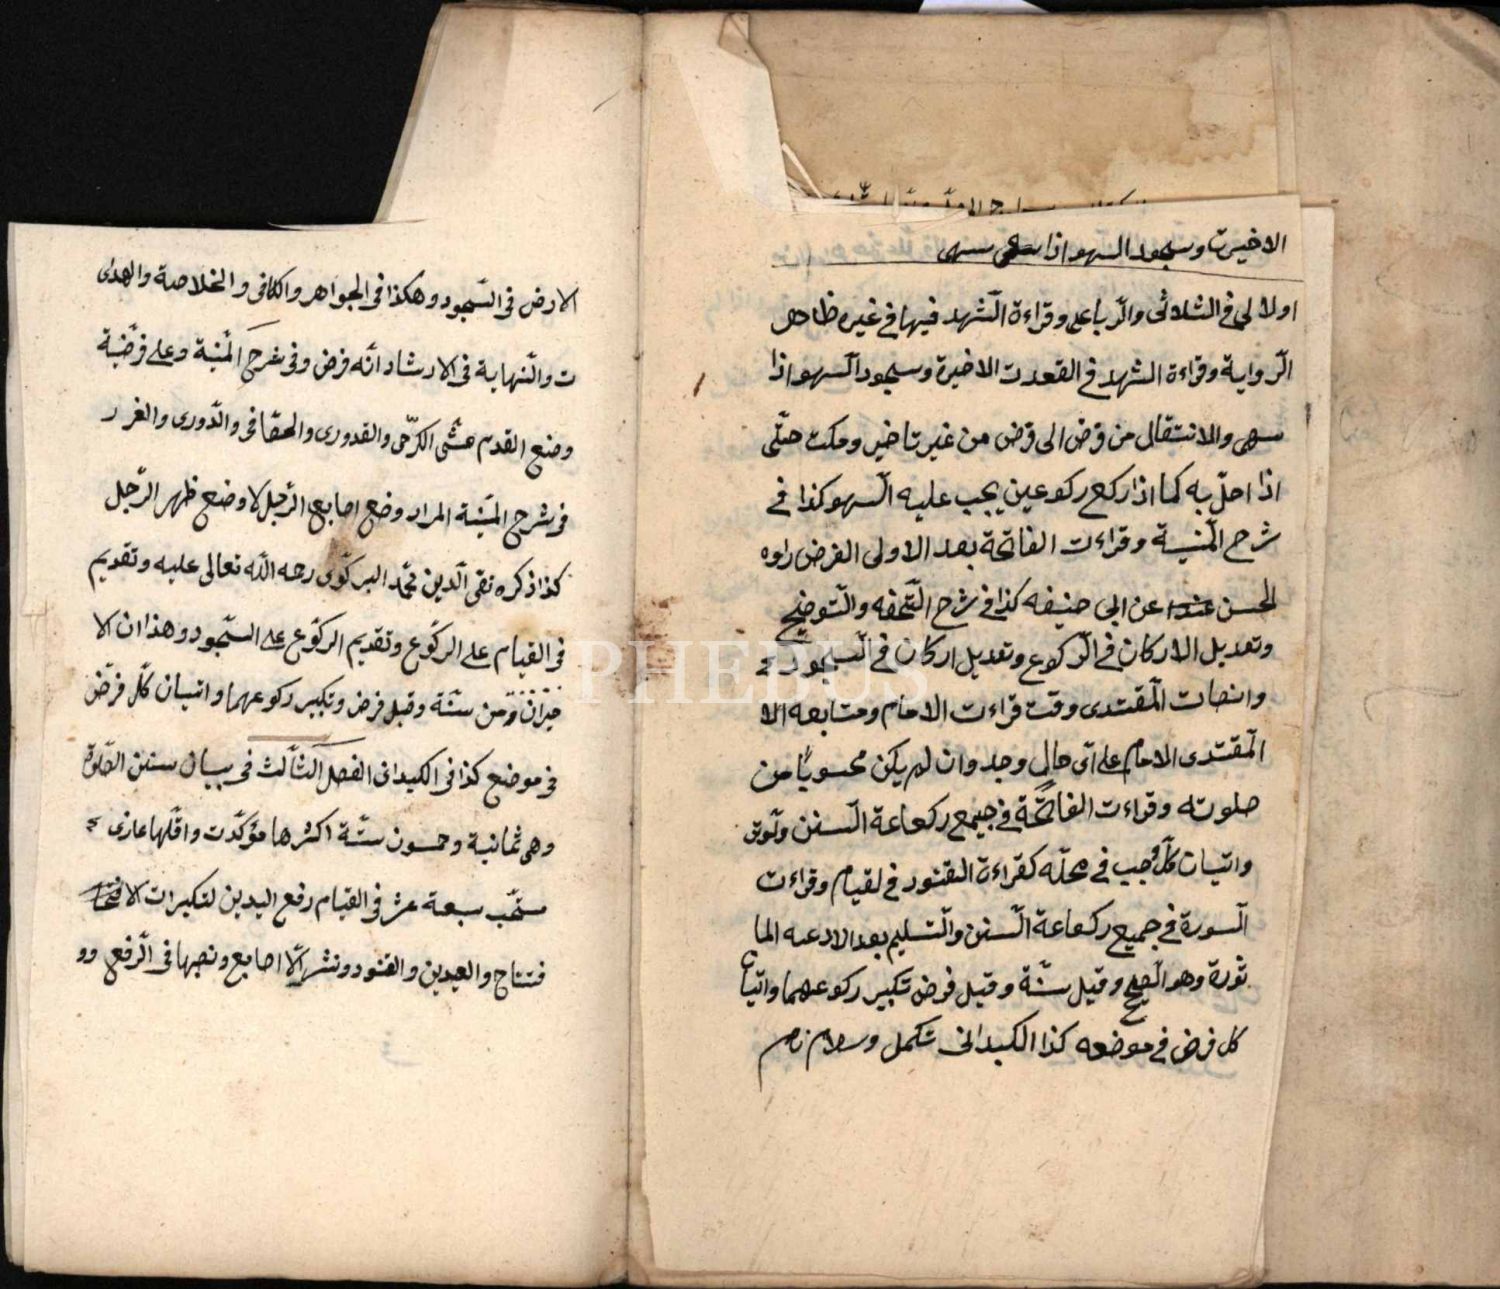 الاخيرت وسجود السهو اذا سهى
اولا لى فى الثلاثى والرباعى وقراءة التشهد فيها فى غيره ظاهر
الرواية وقراءة التشهد فى القعدت الاخيرة وسجود السهو اذا
سهى والانتقال من فرض الى فرض من غير تاخير ومكث حتّى
اذا اخلّ به كما اذا ركع ركوعين يجب عليه السهو كذا فى
شرح المنية وقراءت الفاتحة بعد الاولى الفرض راوه
الحسن عن ابى حنيفه كذا فى شرح التحفه والتوضيح
وتعديل الاركان فى الركوع وتعديل اركان فى السجود
وانصات المقتدى وقت قراءت الامام ومتابعه الا
المقتدى الامام على اىّ حال وجد وان لم يكن محسوبا من
صلوته وقراءت الفاتحة فى جميع ركعاعة السنن وتوتر
واتيات كلّ وجب فى محلّه كقراءت القنود فى لقيام وقراءت
السورة فى جميع ركعاعة السنن والتسليم بعد الادعيه الما
ثورة وهو الصحيح وقيل سنّة وقيل فرض تكبير ركوعهما واتيا
كل فرض فى موضعه كذا الكيدانى تكمل وسلام تام
الارض فى السّجود وهكذا فى الجواهر والكافى والخلاصة والهدى
ت والنّهاية فى الارشاد انّه فرض وفى شرح المنية وعلى فرضية
وضع القدم مشى الكرخى والقدورى والحقافى والدّورى والغرر
فى شرح المنية المراد وضع اصابع الرّجل لا وضع ظهر الرّجل
كذا ذكره تقى الدين محمّد البركوى رحمه اللّه تعالى عليه وتقديم
فى القيام على الركوع وتقديم الركوع على السّجود وهذا ان الا
خيران ومن سنّة وقيل فرض وتكبير ركوعهما واتيان كلّ فرض
فى موضع كذا فى الكيدانى الفصل الثالث فى بيان سنن الصّلوة
وهى ثمانية وخمسون سنّة اكثرها مؤكّدت واقلّها عازى
ستحّب سبعة عشر فى القيام رفع اليدين لتكبيرات الا
فتتاح والعيدين والقنود ونشر الاصابع ونصبها فى الرفع وو
PHEBUS